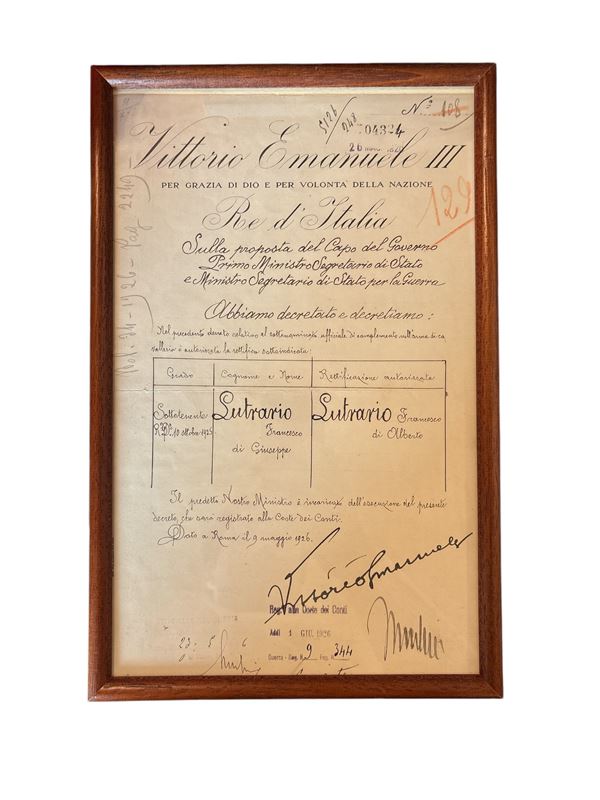 N° 108
5126/248
04324
26
Vittorio Emanuele III
PER GRAZIA DI DIO E PER VOLONTÀ DELLA NAZIONE
129
Re d'Italia
Sulla proposta del Capo del Governo
Primo Ministro Segretario di Stato
e Ministro Segretario di Stato per la Guerra
Abbiamo decretato e decretiamo:
Nel precedente decreto relativo al sottonominato ufficiale di complemento nell'arma di ca
valleria è autorizzata la rettifica sottoindicata:
Grado
Cognome e Nome
Rettificazione autorizzata
Sottotenente
10 ottobre 1925
Lutrario
Francesco
di Giuseppe
Lutrario Francesco
di Alberto
Il predetto Nostro Ministro è incaricato dell'esecuzione del presente
decreto, che sarà registrato alla Corte dei Conti.
Dato a Roma il 9 maggio 1926.
Vittorio Emanuele
Reg. alla Corte dei Conti
Addì 1 GIU. 1926
Guerra - Reg. N. 9 Fog. N. 344
23 5 6
Bol. 34-1926 - Pag 2249